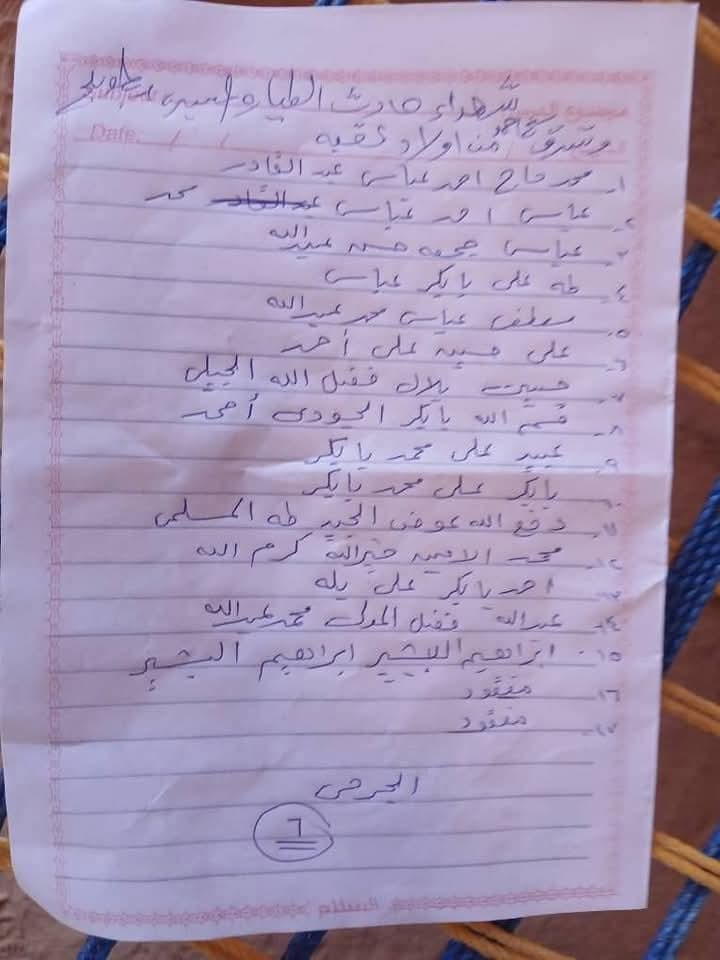 شهداء حادث الطياره امسى
وشرق من اولاد عقبه
١- محمد حاج احمد عباس عبد القادر
٢- عباس احمد عباس عبد القادر محمد
٣- عباس جمعه حسن عبدالله
٤- طه على بابكر عباس
٥- عباس محمد عبدالله
٦- على حسين على أحمد
٧- بلال فضل الله الجيلى
٨- قسم الله بابكر أحمد
٩- عبيد على محمد بابكر
١٠- بابكر على محمد بابكر
١١- دفع الله عوض الجيد طه المسلمى
١٢- محمد الامين خيرالله كرم الله
١٣- احمد بابكر على يله
١٤- عبدالله فضل المولى محمد عبدالله
١٥- ابراهيم البشير ابراهيم البشير
١٦- مفقود
١٧- مفقود
الجرحى
٦